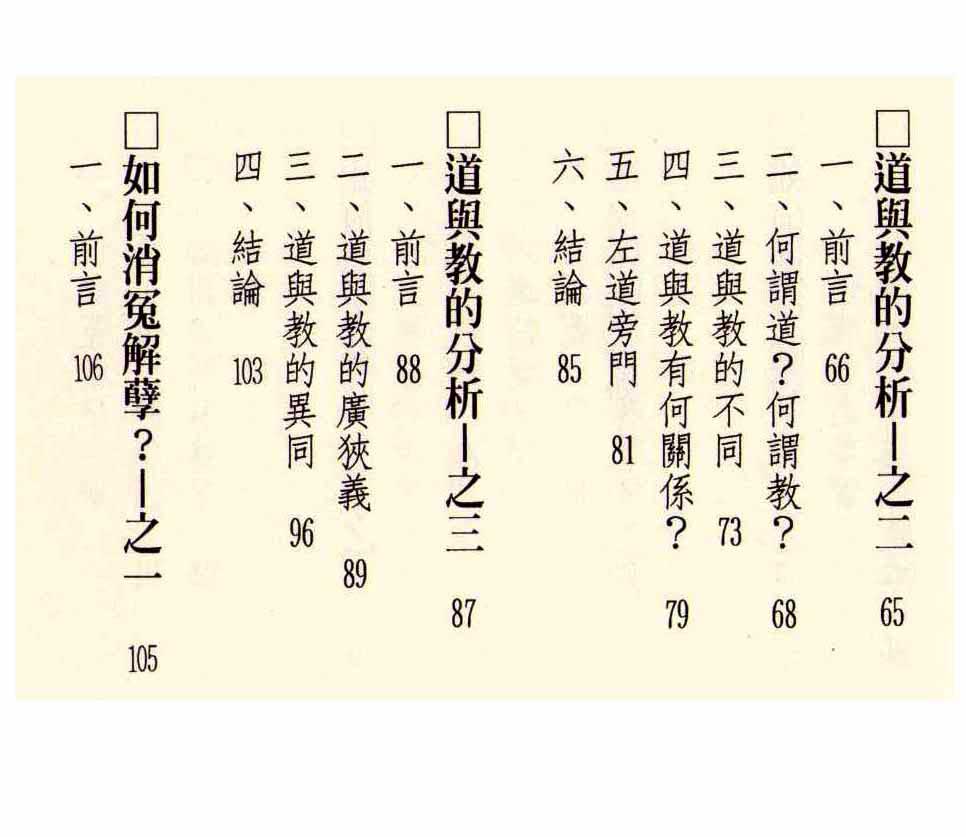 □道與教的分析—之二 65
一、前言 66
二、何謂道？何謂教？ 68
三、道與教的不同 73
四、道與教有何關係？ 79
五、左道旁門 81
六、結論 85
□道與教的分析—之三 87
一、前言 88
二、道與教的廣狹義 89
三、道與教的異同 96
四、結論 103
□如何消冤解孽？—之一 105
一、前言 106